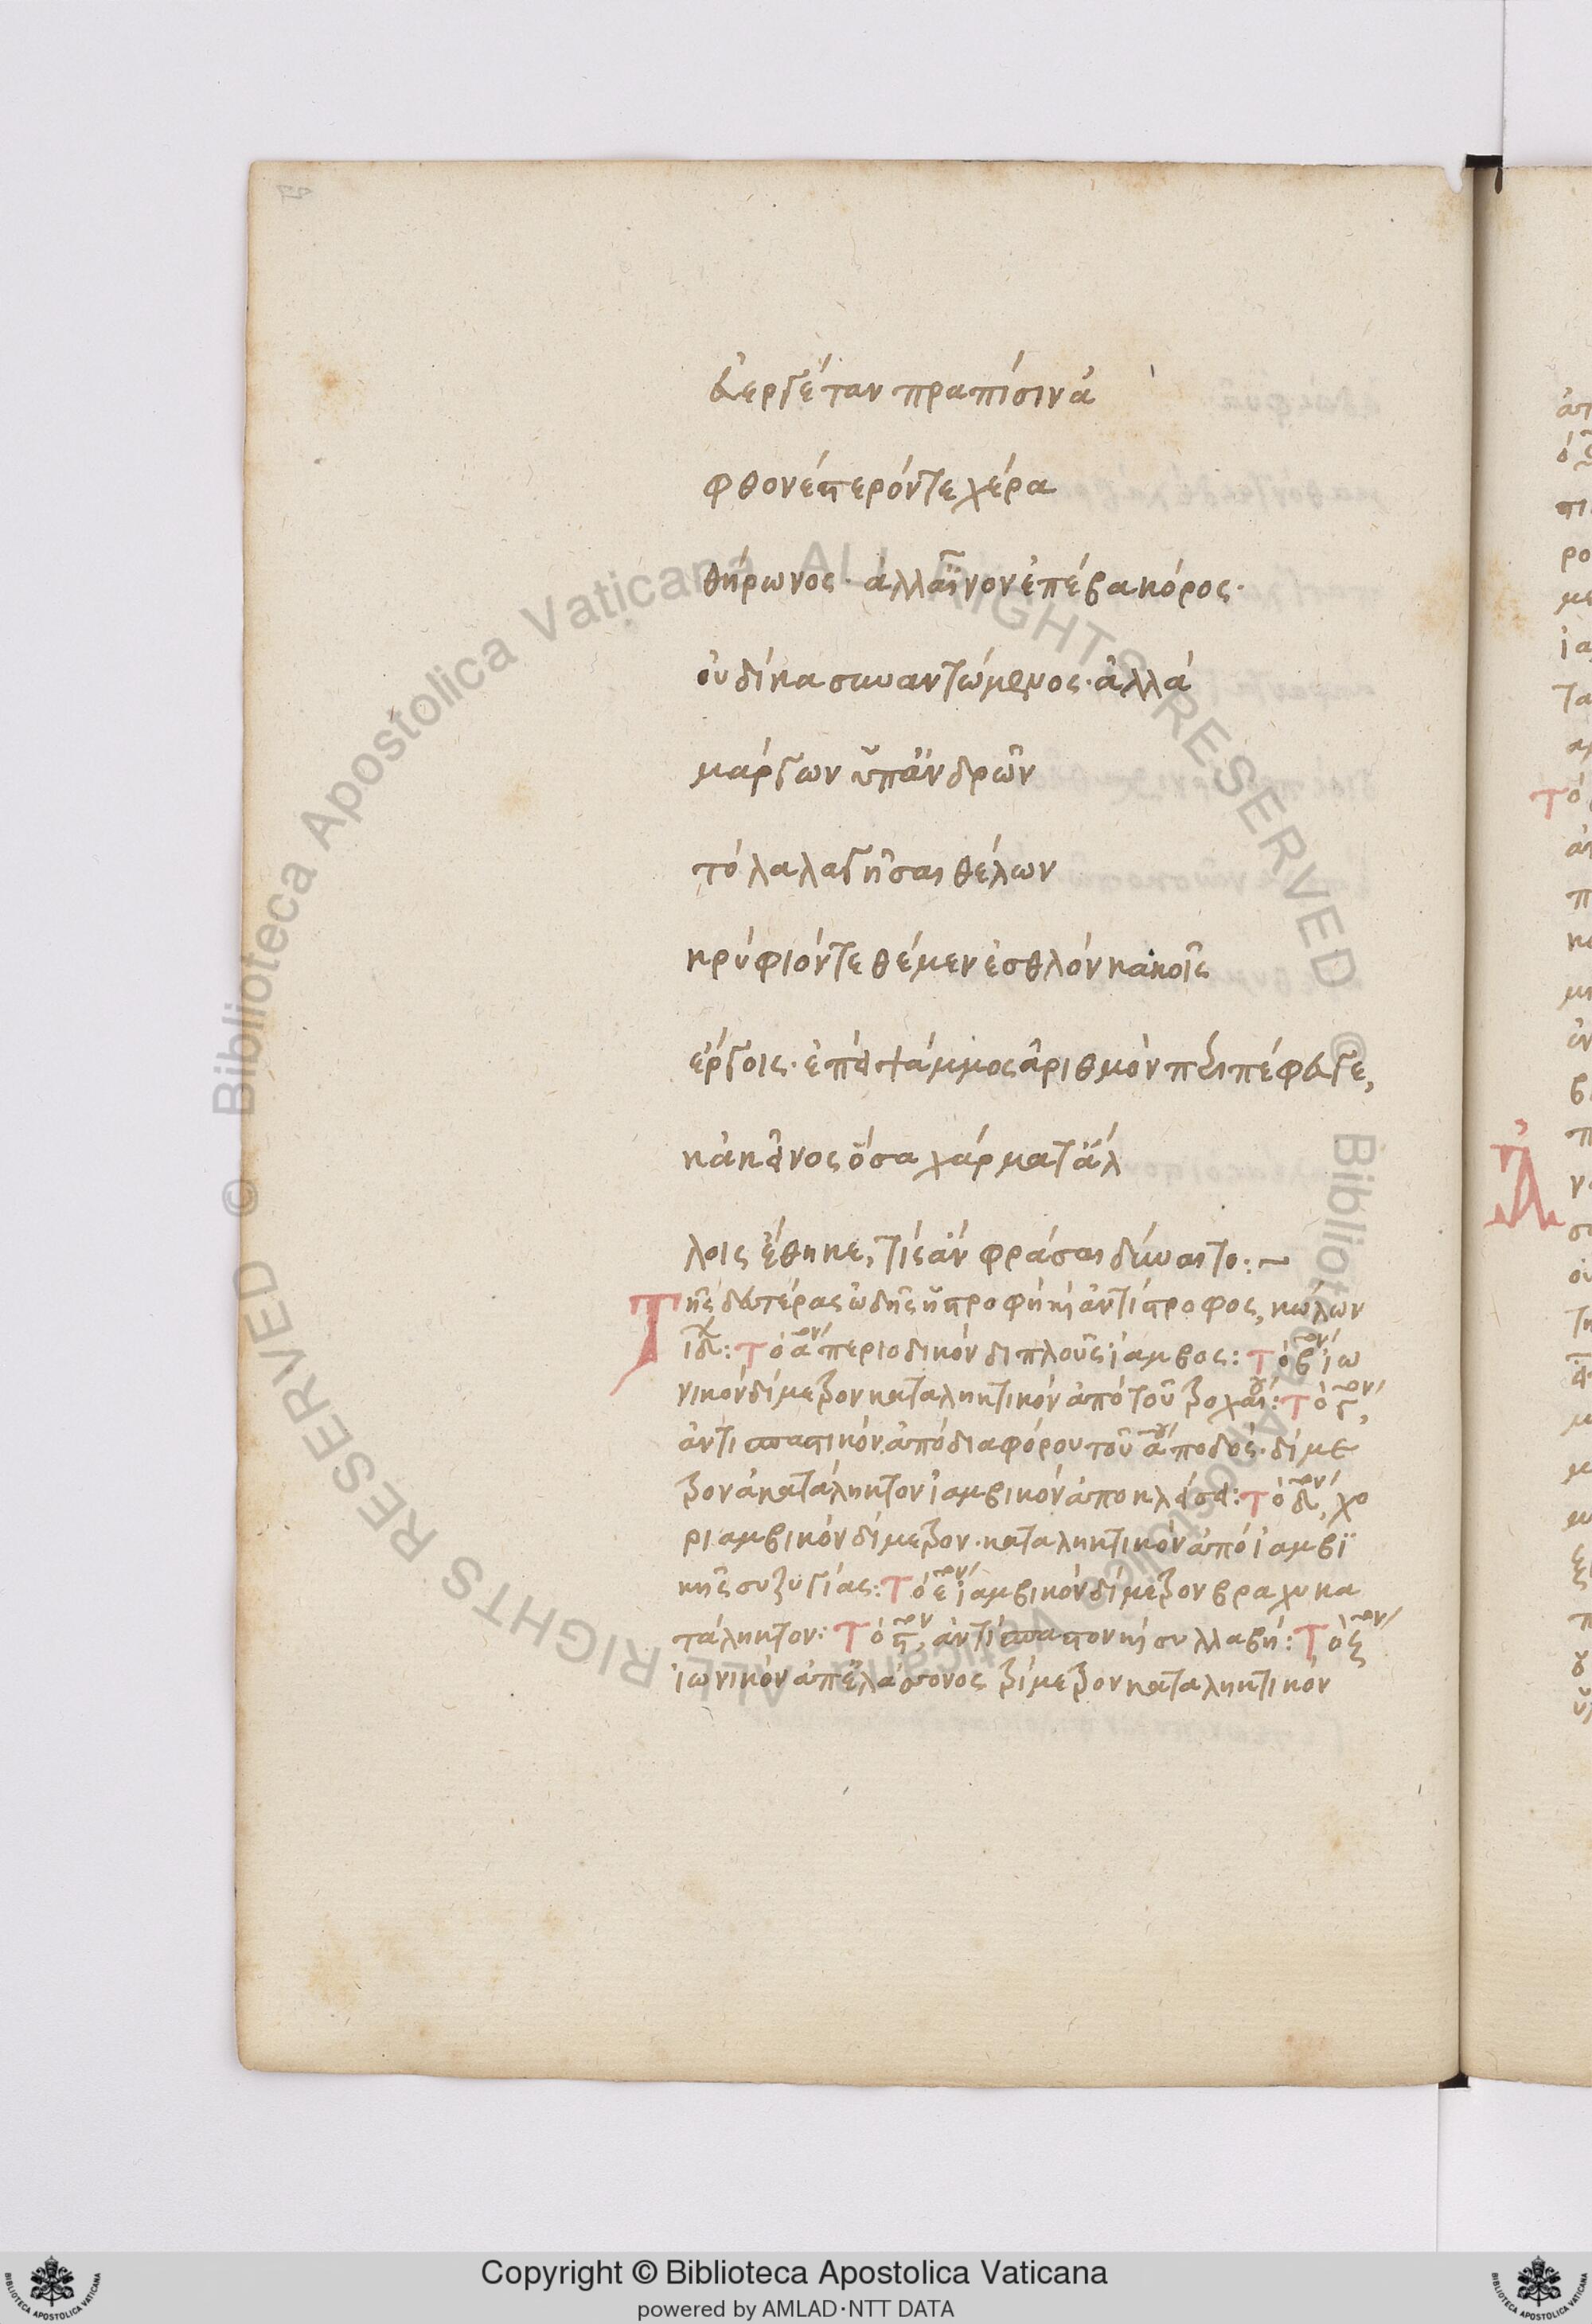 εὐεργέταν πραπίσιν ἀ
φθονέστερόν τε χέρα
θήρωνος· ἀλλ' αἶνον ἐπέβα κόρος·
οὐ δίκα συναντώμενος· ἀλλὰ
μάργων ὑπ' ἀνδρῶν
τὸ λαλαγῆσαι θέλων
κρύφιόν τε θέμεν ἐσθλὸν κακοῖς
ἔργοις· ἐπεὶ ψάμμος ἀριθμὸν περιπέφευγε,
κἀκεῖνος ὅσα χάρματ' ἄλ
λοις ἔθηκε, τίς ἂν φράσαι δύναιτο:~
Τῆς δευτέρας ὠδῆς ἡ στροφὴ καὶ ἀντίστροφος, κώλων
ιδ: Τὸ αον περιοδικὸν διπλοῦς ἴαμβος: Τὸ βον ἰω
νικὸν δίμετρον καταληκτικὸν ἀπὸ τοῦ τροχαίου: Τὸ γον,
ἀντισπαστικὸν ἀπὸ διαφόρου τοῦ αου ποδός· δίμε
τρον ἀκατάληκτον ἰαμβικὸν ἀποκλείσει: Τὸ δον, χο
ριαμβικὸν δίμετρον· καταληκτικὸν ἀπὸ ἰαμβι
κῆς συζυγίας: Τὸ εον ἰαμβικὸν δίμετρον βραχυκα
τάληκτον: Τὸ ϛον, ἀντίσπαστον καὶ συλλαβή: Τὸ ζον
ἰωνικὸν ἀπ' ἐλάσσονος τρίμετρον καταληκτικὸν
© Biblioteca Apostolica Vaticana ALL RIGHTS RESERVED © Biblioteca Apostolica Vaticana ALL RIGHTS RESERVED
Copyright © Biblioteca Apostolica Vaticana
powered by AMLAD·NTT DATA